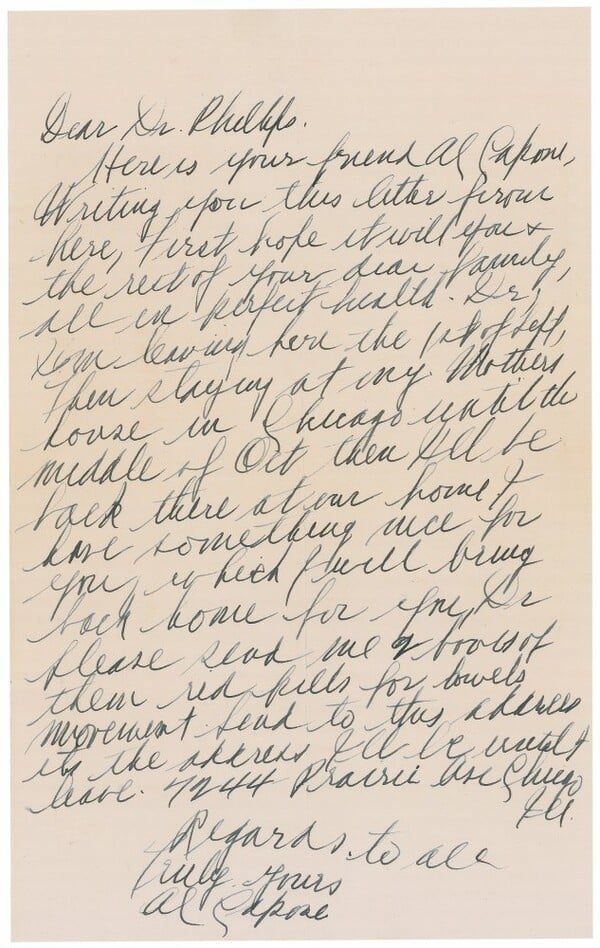 Dear Dr. Phillips.
Here is your friend Al Capone,
Writing you this letter from
here, First hope it will you &
the rest of your dear Family,
all in perfect health. Dr,
I'm leaving here the 1st of Sept,
Then staying at my Mothers
house in Chicago until the
middle of Oct then I'll be
back there at our home I
have something nice for
you, which I will bring
back home for you, Dr
please send me 2 boxes of
them red pills for bowels
movement send to this address
its the address I'll be until I
leave. 7244 Prairie Ave Chicago
Ill.
Regards to all
Truly yours
Al Capone